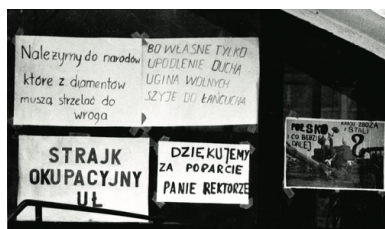 Należymy do narodów
które z diamentów
muszą strzelać do
wroga
BO WŁASNE TYLKO
UPODLENIE DUCHA
UGINA WOLNYCH
SZYJE DO ŁAŃCUCHA
STRAJK
OKUPACYJNY
UŁ
DZIĘKUJEMY
ZA POPARCIE
PANIE REKTORZE
POLSKO
CO BĘDZIE
DALEJ
KRAJU ZBOŻA
I STALI
?